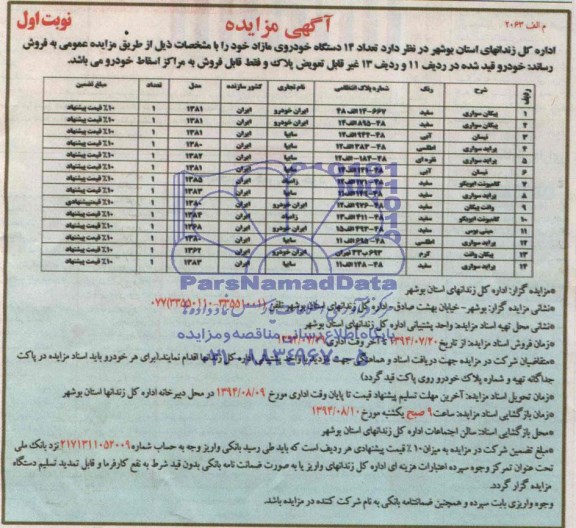 م الف ۲۰۶۳
آگهی مزایده
نوبت اول
اداره کل زندانهای استان بوشهر در نظر دارد تعداد ۱۴ دستگاه خودروی مازاد خود را با مشخصات ذیل از طریق مزایده عمومی به فروش
رساند: خودرو قید شده در ردیف ۱۱ و ردیف ۱۳ غیر قابل تعویض پلاک و فقط قابل فروش به مراکز اسقاط خودرو می باشد.
ردیف شرح رنگ شماره پلاک انتظامی نام تجاری کشور سازنده مدل تعداد مبلغ تضمین
۱ پیکان سواری سفید ایران خودرو ایران ۱۳۸۱ ۱ ۱۰٪ قیمت پیشنهاد
۲ پیکان سواری سفید ایران خودرو ایران ۱۳۸۱ ۱ ۱۰٪ قیمت پیشنهاد
۳ نیسان آبی سایپا ایران ۱۳۸۱ ۱ ۱۰٪ قیمت پیشنهاد
۴ پراید سواری اطلسی سایپا ایران ۱۳۸۰ ۱ ۱۰٪ قیمت پیشنهاد
۵ پراید سواری نقره ای سایپا ایران ۱۳۸۲ ۱ ۱۰٪ قیمت پیشنهاد
۶ نیسان آبی ایران ۱۳۸۱ ۱ ۱۰٪ قیمت پیشنهاد
۷ کامیونت ایویکو سفید زامیاد ایران ۱۳۸۵ ۱ ۱۰٪ قیمت پیشنهاد
۸ پراید سواری سفید ایران ۱۳۸۳ ۱ ۱۰٪ قیمت پیشنهاد
۹ وانت پیکان سفید ایران خودرو ایران ۱۳۸۰ ۱ ۱۰٪ قیمت پیشنهادی
۱۰ کامیونت ایویکو سفید زامیاد ایران ۱۳۸۴ ۱ ۱۰٪ قیمت پیشنهاد
۱۱ مینی بوس سفید ایران خودرو ایران ۱۳۶۸ ۱ ۱۰٪ قیمت پیشنهاد
۱۲ پراید سواری اطلسی سایپا ایران ۱۳۸۰ ۱ ۱۰٪ قیمت پیشنهاد
۱۳ پیکان وانت کرم ایران خودرو ایران ۱۳۶۲ ۱ ۱۰٪ قیمت پیشنهاد
۱۴ پراید سواری سفید سایپا ایران ۱۳۸۳ ۱ ۱۰٪ قیمت پیشنهاد
ParsNamadData
پایگاه اطلاع رسانی مناقصه و مزایده
۰۲۱-۸۸۳۴۹۶۷۰-۵
*مزایده گزار: اداره کل زندانهای استان بوشهر
*نشانی مزایده گزار: بوشهر- خیابان بهشت صادق- اداره کل زندانهای استان بوشهر تلفن
*نشانی محل تهیه اسناد مزایده: واحد پشتیبانی اداره کل زندانهای استان بوشهر
*زمان فروش اسناد مزایده: از تاریخ ۱۳۹۴/۰۷/۲۰ تا آخر وقت اداری
*متقاضیان شرکت در مزایده جهت دریافت اسناد و هماهنگی جهت اداره کل زندانها اقدام نمایند. (برای هر خودرو باید اسناد مزایده در پاکت
جداگانه تهیه و شماره پلاک خودرو روی پاکت قید گردد)
*زمان تحویل اسناد مزایده: آخرین مهلت تسلیم پیشنهاد قیمت تا پایان وقت اداری مورخ ۱۳۹۴/۰۸/۰۹ در محل دبیرخانه اداره کل زندانها استان بوشهر
*زمان بازگشایی اسناد مزایده: ساعت ۹ صبح یکشنبه مورخ ۱۳۹۴/۰۸/۱۰
*محل بازگشایی اسناد: سالن اجتماعات اداره کل زندانهای استان بوشهر
*مبلغ تضمین شرکت در مزایده به میزان ۱۰٪ قیمت پیشنهادی هر ردیف است که باید طی رسید بانکی واریز وجه به حساب شماره ۲۱۷۱۳۱۱۰۵۲۰۰۹ نزد بانک ملی
تحت عنوان تمرکز وجوه سپرده اعتبارات هزینه ای اداره کل زندانهای واریز یا به صورت ضمانت نامه بانکی بدون قید شرط به نفع کارفرما و قابل تمدید تسلیم دستگاه
مزایده گزار گردد.
وجوه واریزی بابت سپرده و همچنین ضمانتنامه بانکی به نام شرکت کننده در مزایده باشد.